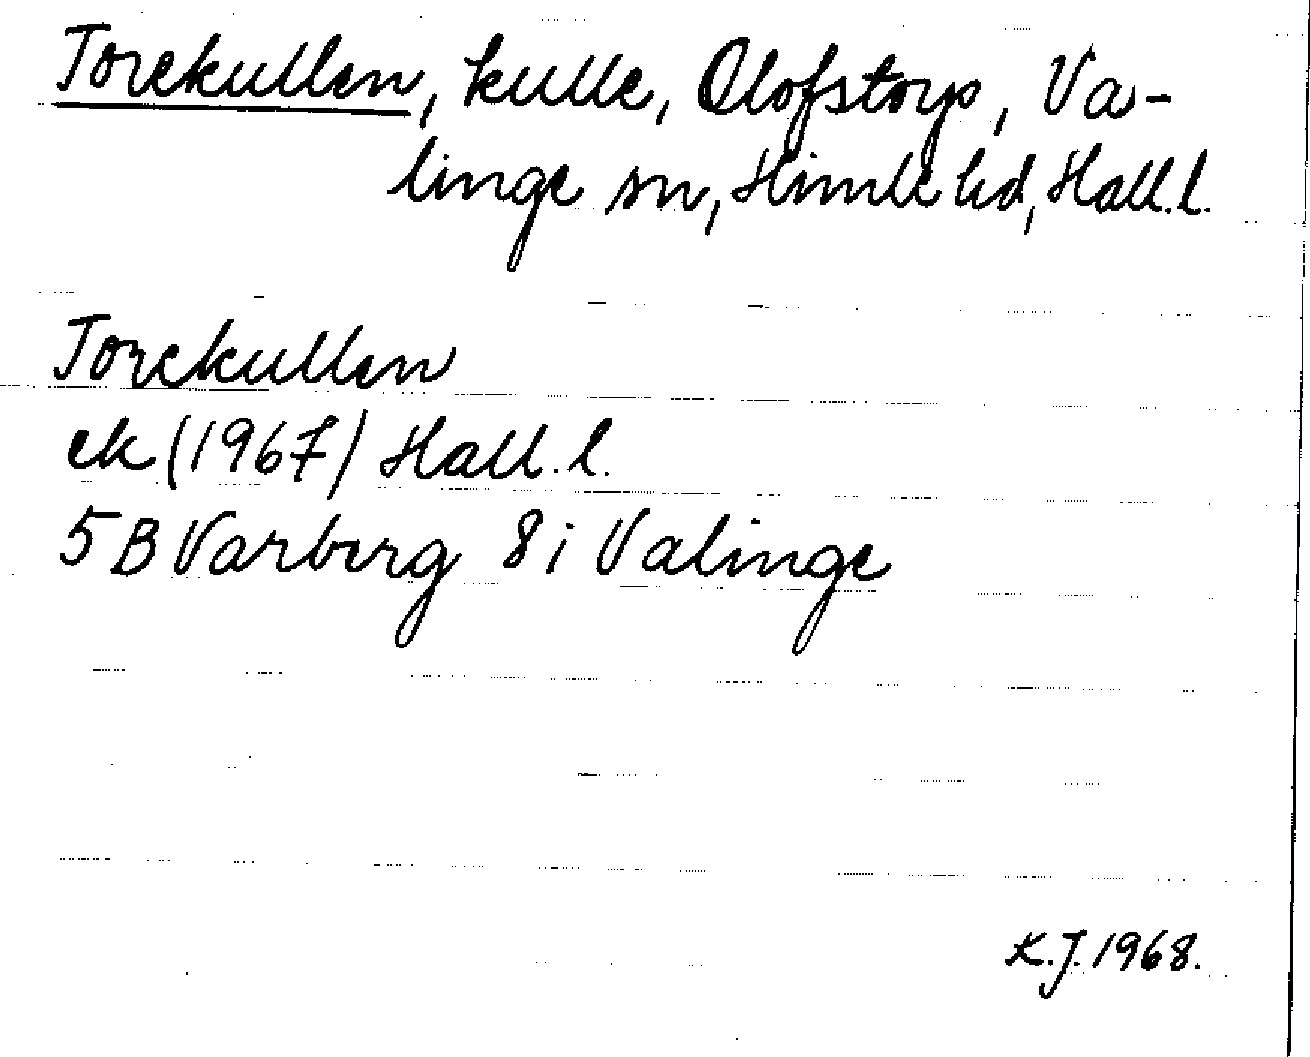 Torekullen, kulle, Olofstorp, Va-
linge sn, Himle hd, Hall.l.
Torekullen
ek (1967) Hall.l.
5B Varberg 8i Valinge
K.J. 1968.